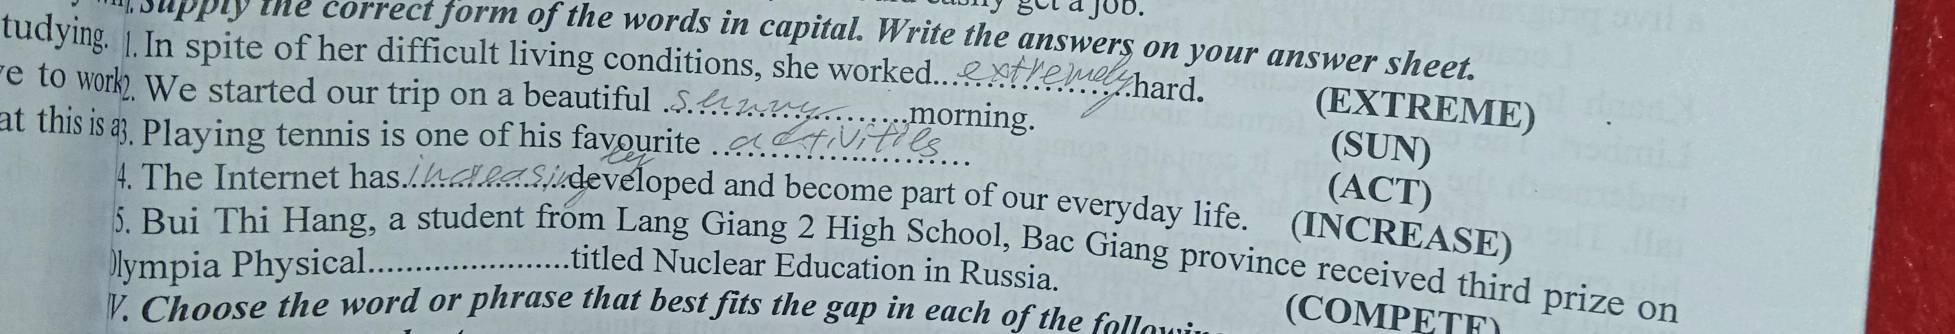 get a job.
Supply the correct form of the words in capital. Write the answers on your answer sheet.
tudying. 1. In spite of her difficult living conditions, she worked...extremely...hard. (EXTREME)
e to work 2. We started our trip on a beautiful .sunny............morning. (SUN)
at this is a 3. Playing tennis is one of his favourite ..activities.... (ACT)
4. The Internet has..increasingly..developed and become part of our everyday life. (INCREASE)
5. Bui Thi Hang, a student from Lang Giang 2 High School, Bac Giang province received third prize on
Olympia Physical......................titled Nuclear Education in Russia. (COMPETE)
V. Choose the word or phrase that best fits the gap in each of the